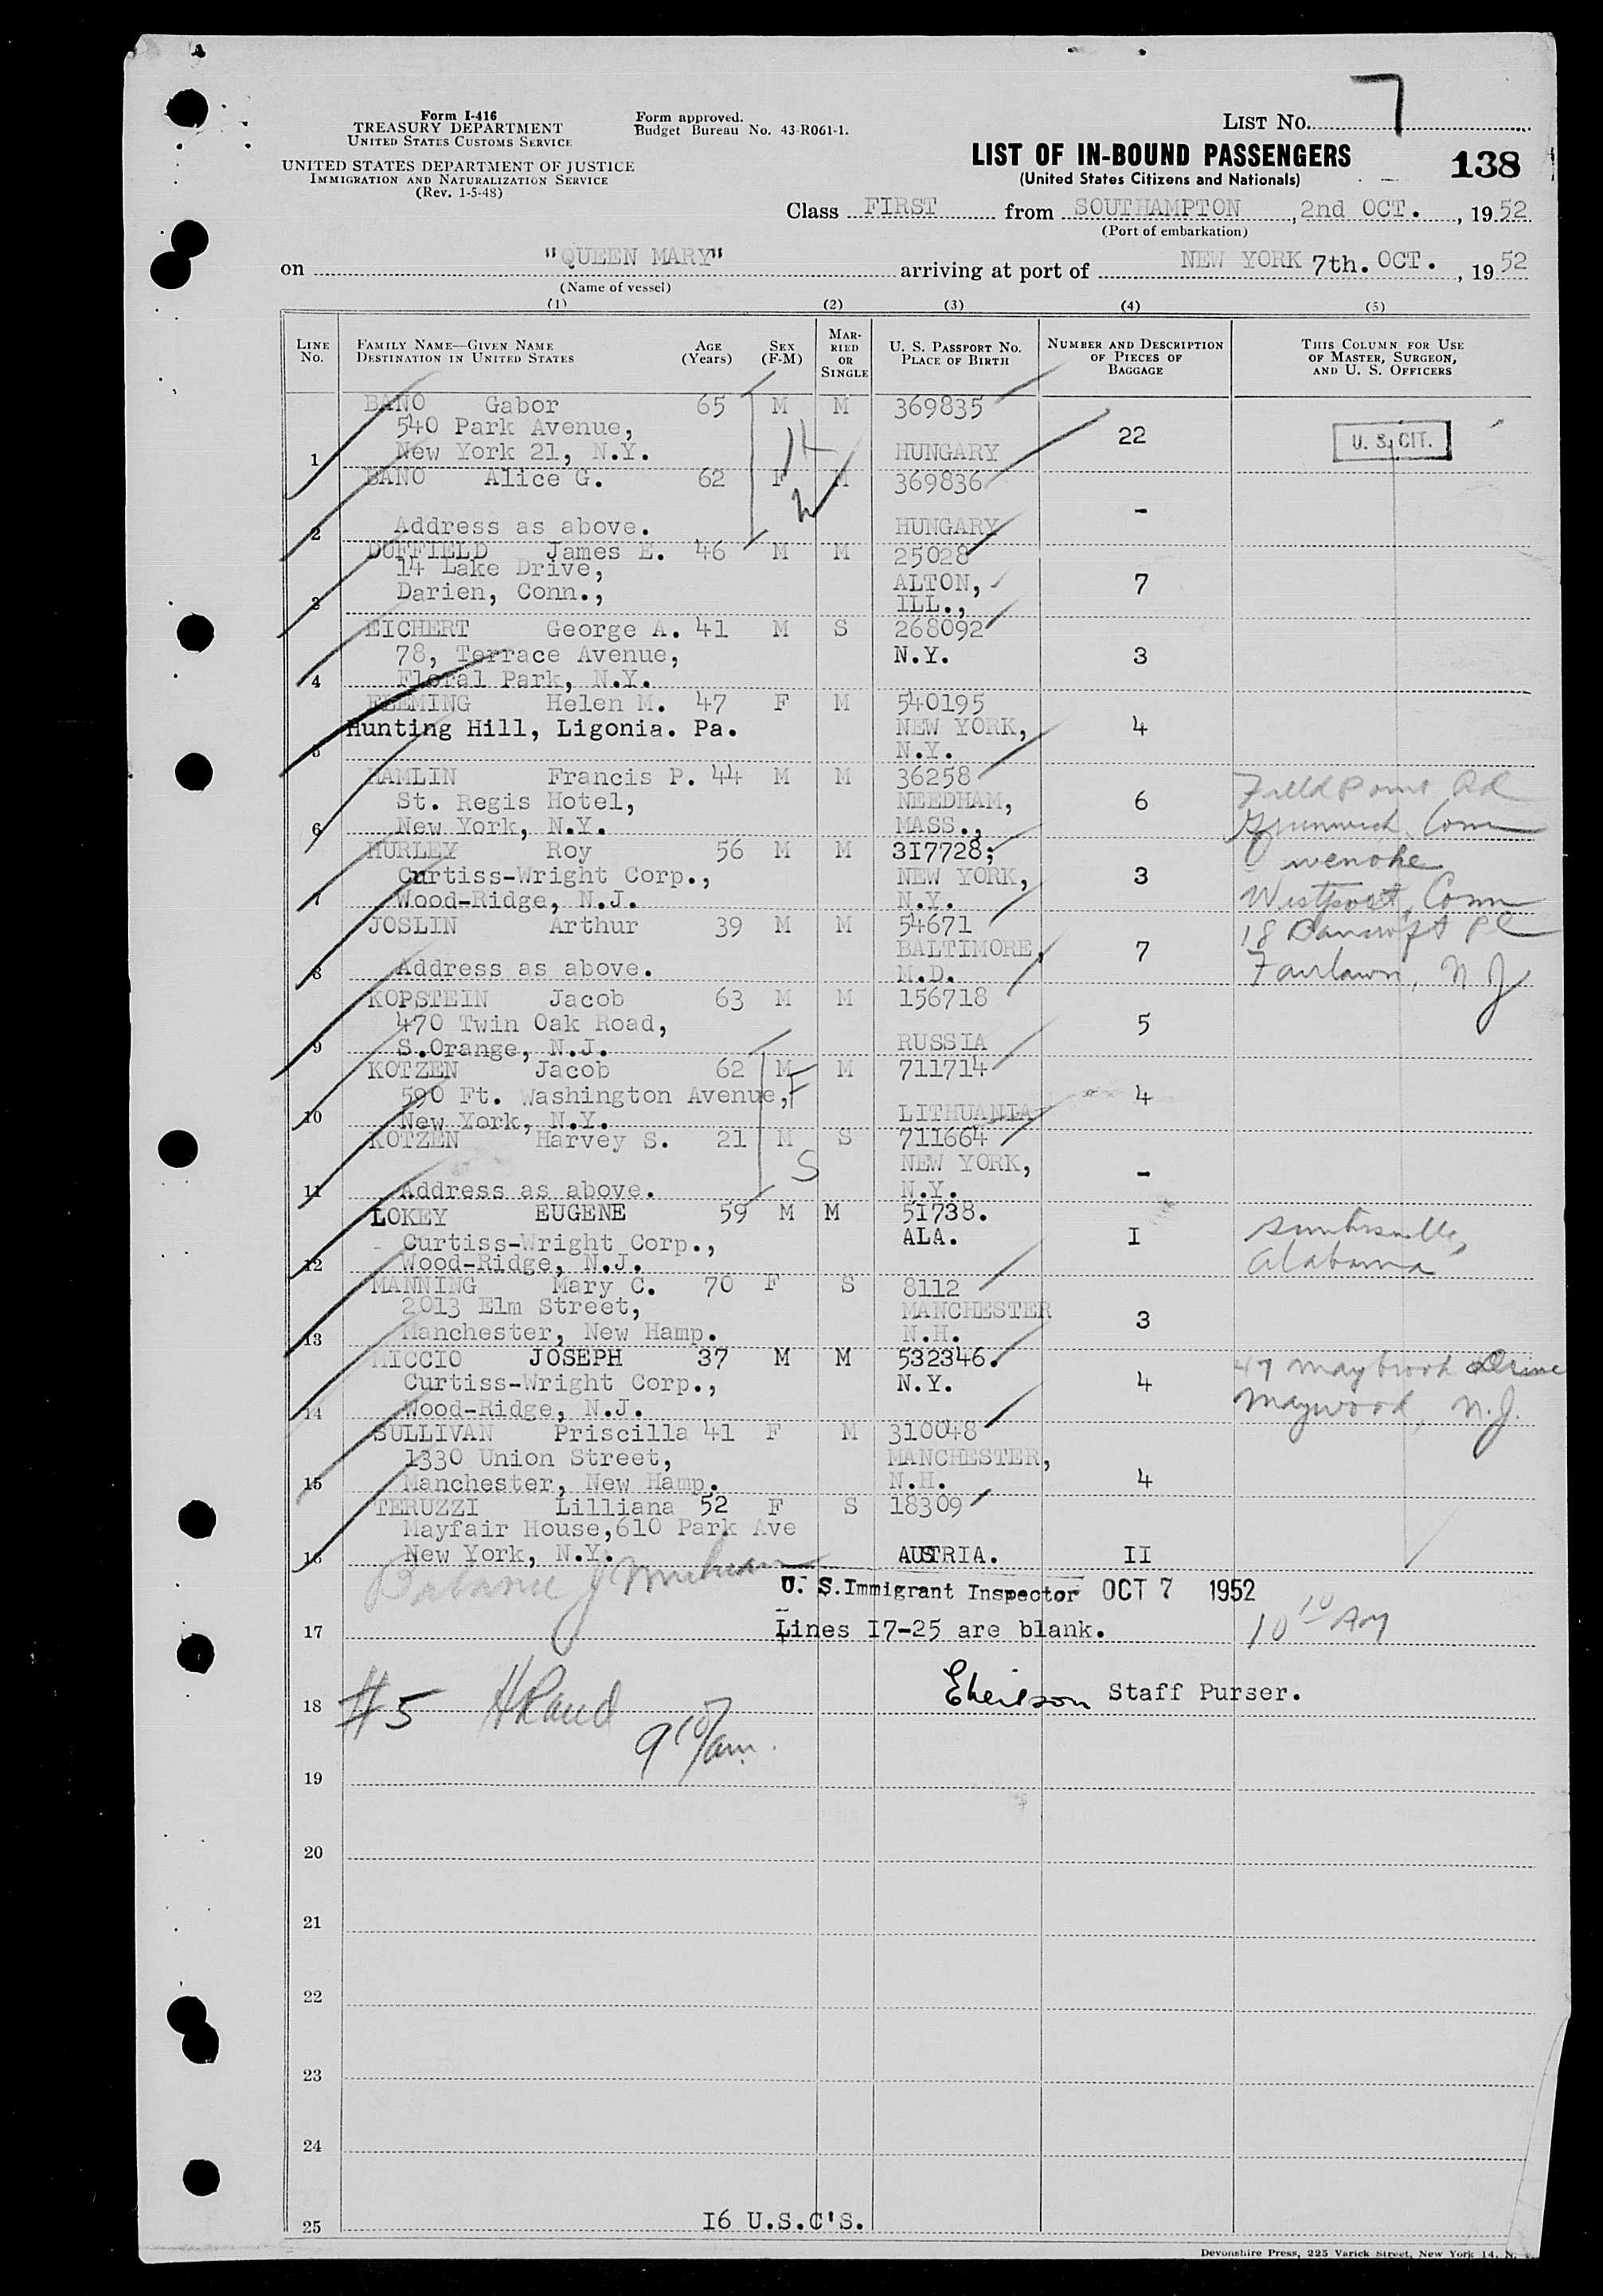 7
Form I-416
TREASURY DEPARTMENT
UNITED STATES CUSTOMS SERVICE
UNITED STATES DEPARTMENT OF JUSTICE
IMMIGRATION AND NATURALIZATION SERVICE
(Rev. 1-5-48)
Form approved.
Budget Bureau No. 43-R061-1.
LIST No.
LIST OF IN-BOUND PASSENGERS
138
(United States Citizens and Nationals)
Class FIRST from SOUTHAMPTON, 2nd OCT., 1952
(Port of embarkation)
on "QUEEN MARY" arriving at port of NEW YORK 7th. OCT., 1952
(Name of vessel)
(1) (2) (3) (4) (5)
LINE No. FAMILY NAME—GIVEN NAME DESTINATION IN UNITED STATES AGE (Years) SEX (F-M) MARRIED OR SINGLE U. S. PASSPORT NO. PLACE OF BIRTH NUMBER AND DESCRIPTION OF PIECES OF BAGGAGE THIS COLUMN FOR USE OF MASTER, SURGEON, AND U. S. OFFICERS
BANO Gabor 65 M M 369835
540 Park Avenue, 22 U. S. CIT.
1 New York 21, N.Y. HUNGARY
BANO Alice G. 62 F M 369836
-
2 Address as above. HUNGARY
DUFFIELD James E. 46 M M 25028
14 Lake Drive, ALTON, 7
3 Darien, Conn., ILL.,
EICHERT George A. 41 M S 268092
78, Terrace Avenue, N.Y. 3
4 Floral Park, N.Y.
FLEMING Helen M. 47 F M 540195
Hunting Hill, Ligonia. Pa. NEW YORK, 4
5 N.Y.
HAMLIN Francis P. 44 M M 36258
St. Regis Hotel, NEEDHAM, 6 Field Point Rd
6 New York, N.Y. MASS., Greenwich, Conn
HURLEY Roy 56 M M 317728; wenoke
Curtiss-Wright Corp., NEW YORK, 3
7 Wood-Ridge, N.J. N.Y. Westport, Conn
JOSLIN Arthur 39 M M 54671 18 Bancroft Pl
BALTIMORE, 7
8 Address as above. M.D. Fairlawn, N J
KOPSTEIN Jacob 63 M M 156718
470 Twin Oak Road, 5
9 S.Orange, N.J. RUSSIA
KOTZEN Jacob 62 M M 711714
590 Ft. Washington Avenue, F 4
10 New York, N.Y. LITHUANIA
KOTZEN Harvey S. 21 M S 711664
S NEW YORK, -
11 Address as above. N.Y.
LOKEY EUGENE 59 M M 51738.
Curtiss-Wright Corp., ALA. I
12 Wood-Ridge, N.J. Alabama
MANNING Mary C. 70 F S 8112
2013 Elm Street, MANCHESTER 3
13 Manchester, New Hamp. N.H.
MICCIO JOSEPH 37 M M 532346. 47 Maybrook Drive
Curtiss-Wright Corp., N.Y. 4
14 Wood-Ridge, N.J. Maywood, N.J.
SULLIVAN Priscilla 41 F M 310048
1330 Union Street, MANCHESTER,
15 Manchester, New Hamp. N.H. 4
TERUZZI Lilliana 52 F S 18309
Mayfair House,610 Park Ave
16 New York, N.Y. AUSTRIA. II
U. S. Immigrant Inspector OCT 7 1952
17 Lines I7-25 are blank. 10 10 AM
18 #5 Staff Purser.
9 10/am.
19
20
21
22
23
24
25 I6 U.S.C'S.
Devonshire Press, 225 Varick Street, New York 14, N.